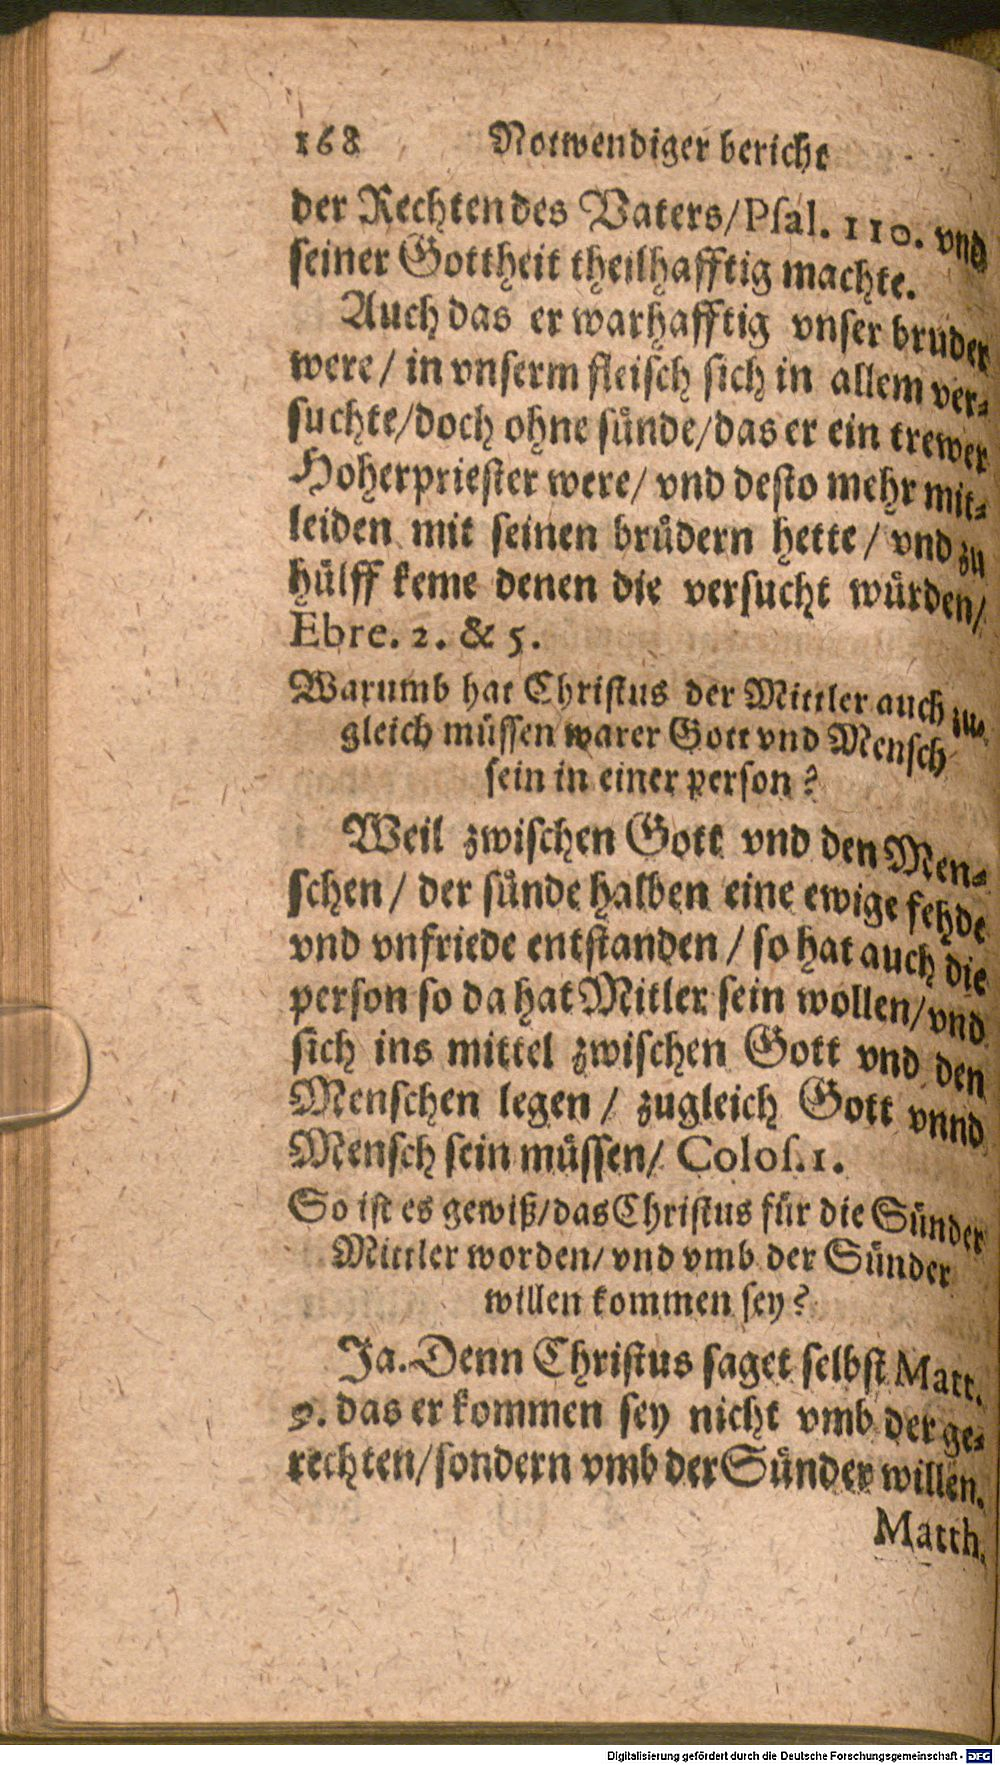 168 Notwendiger bericht
der Rechten des Vaters/Psal. 110. vnd
seiner Gottheit theilhafftig machte.
Auch das er warhafftig vnser bruder
were/ in vnserm fleisch sich in allem ver-
suchte/doch ohne sünde/das er ein trewer
Hoherpriester were/ vnd desto mehr mit-
leiden mit seinen brüdern hette/ vnd zu
hülff keme denen die versucht würden/
Ebre. 2. & 5.
Warumb hat Christus der Mittler auch zu-
gleich müssen warer Gott vnd Mensch
sein in einer person?
Weil zwischen Gott vnd den Men-
schen/ der sünde halben eine ewige fehde
vnd vnfriede entstanden/ so hat auch die
person so da hat Mitler sein wollen/vnd
sich ins mittel zwischen Gott vnd den
Menschen legen/ zugleich Gott vnnd
Mensch sein müssen/ Colos.1.
So ist es gewiß/das Christus für die Sünder
Mittler worden/ vnd vmb der Sünder
willen kommen sey?
Ja. Denn Christus saget selbst Matt.
9. das er kommen sey nicht vmb der ge-
rechten/sondern vmb der Sünder willen.
Matth.
Digitalisierung gefördert durch die Deutsche Forschungsgemeinschaft - DFG